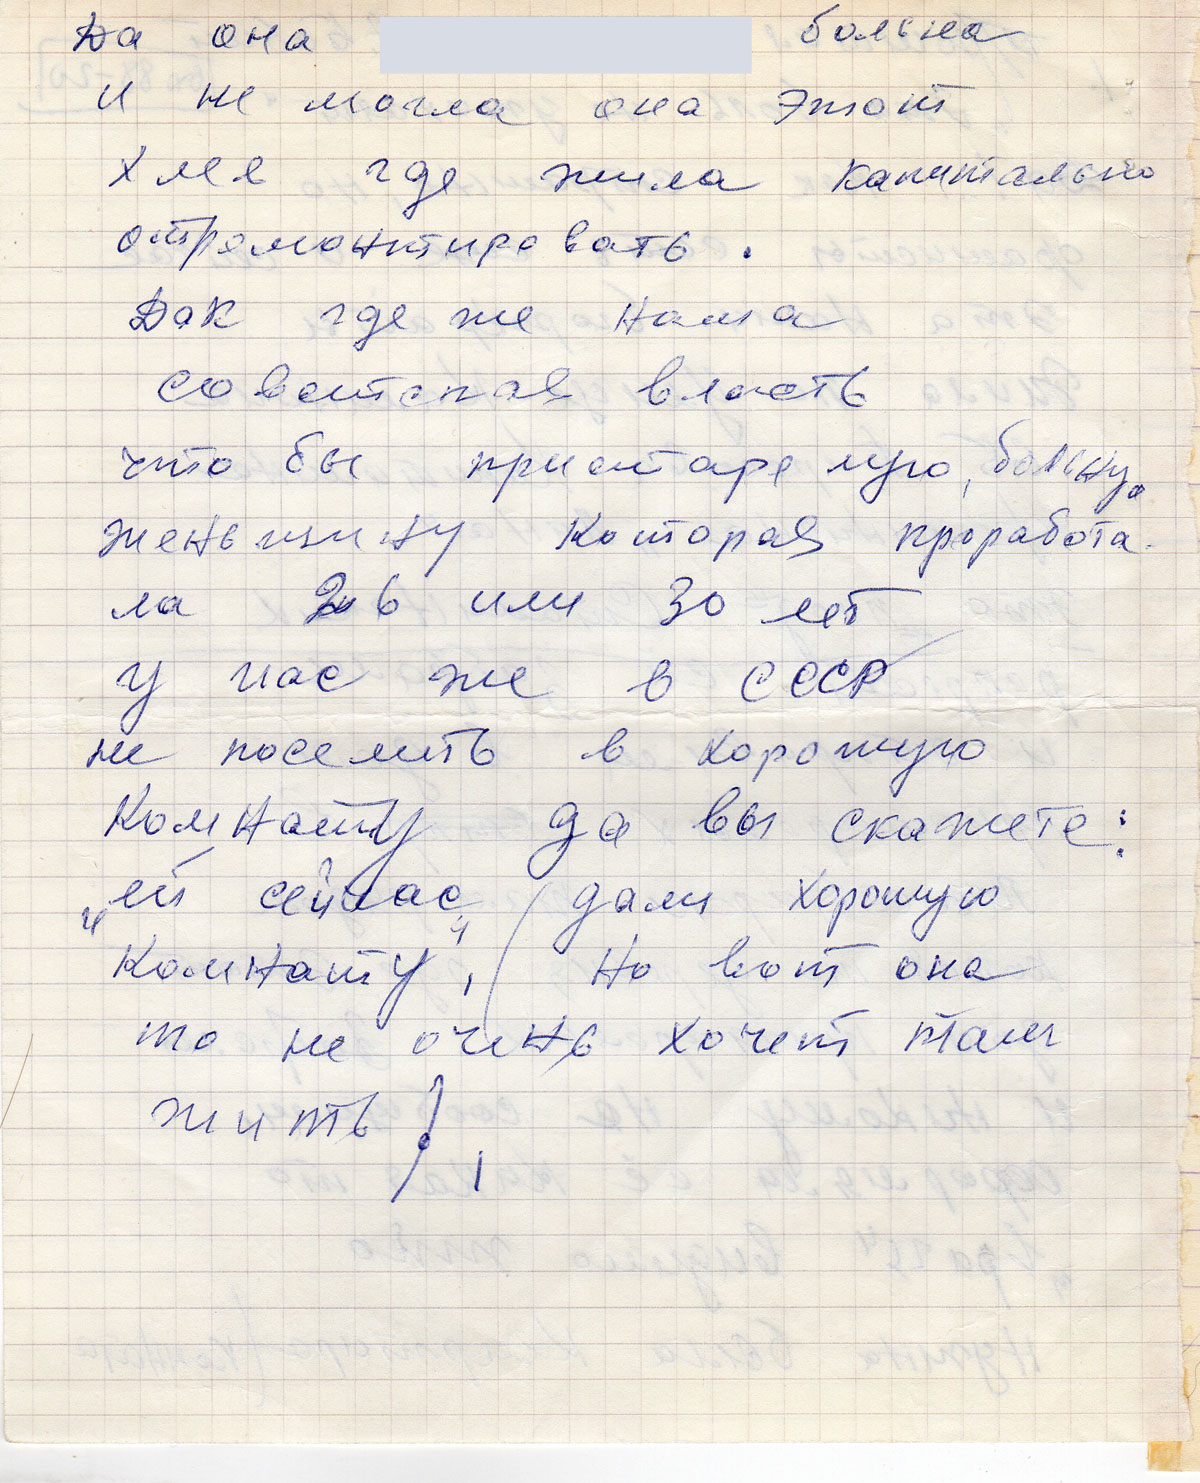 Да она больна
и не могла она этот
хлев где жила капитально
отремонтировать.
Дак где же наша
советская власть
что бы престарелую, больную
женьщину которая проработа-
ла 26 или 30 лет
у нас же в СССР
не поселить в хорошую
комнату да вы скажете:
"ей сейчас" дали хорошую
комнату", но вот она
то не очень хочет там
жить!,